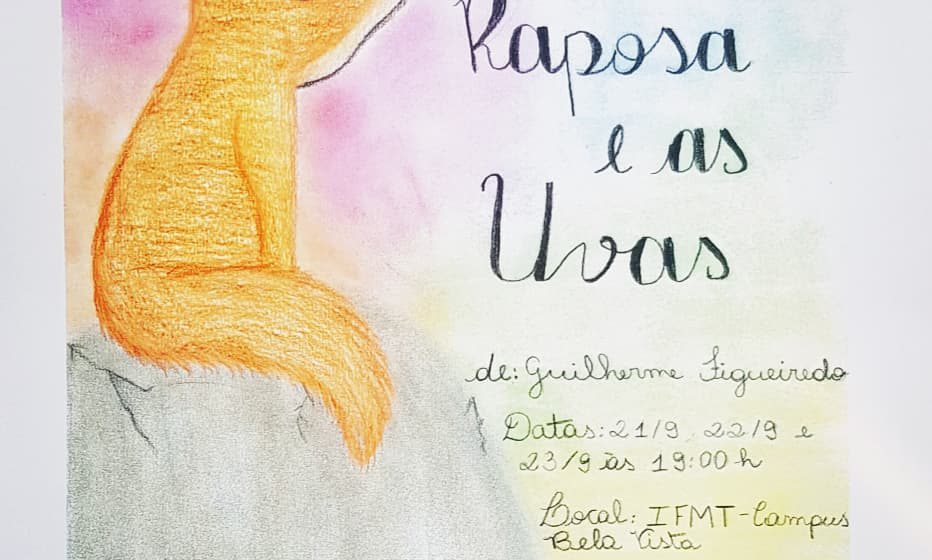 Raposa
e as
Uvas
de: Guilherme Figueiredo
Datas: 21/9, 22/9 e
23/9 às 19:00 h
Local: IFMT-Campus
Bela Vista